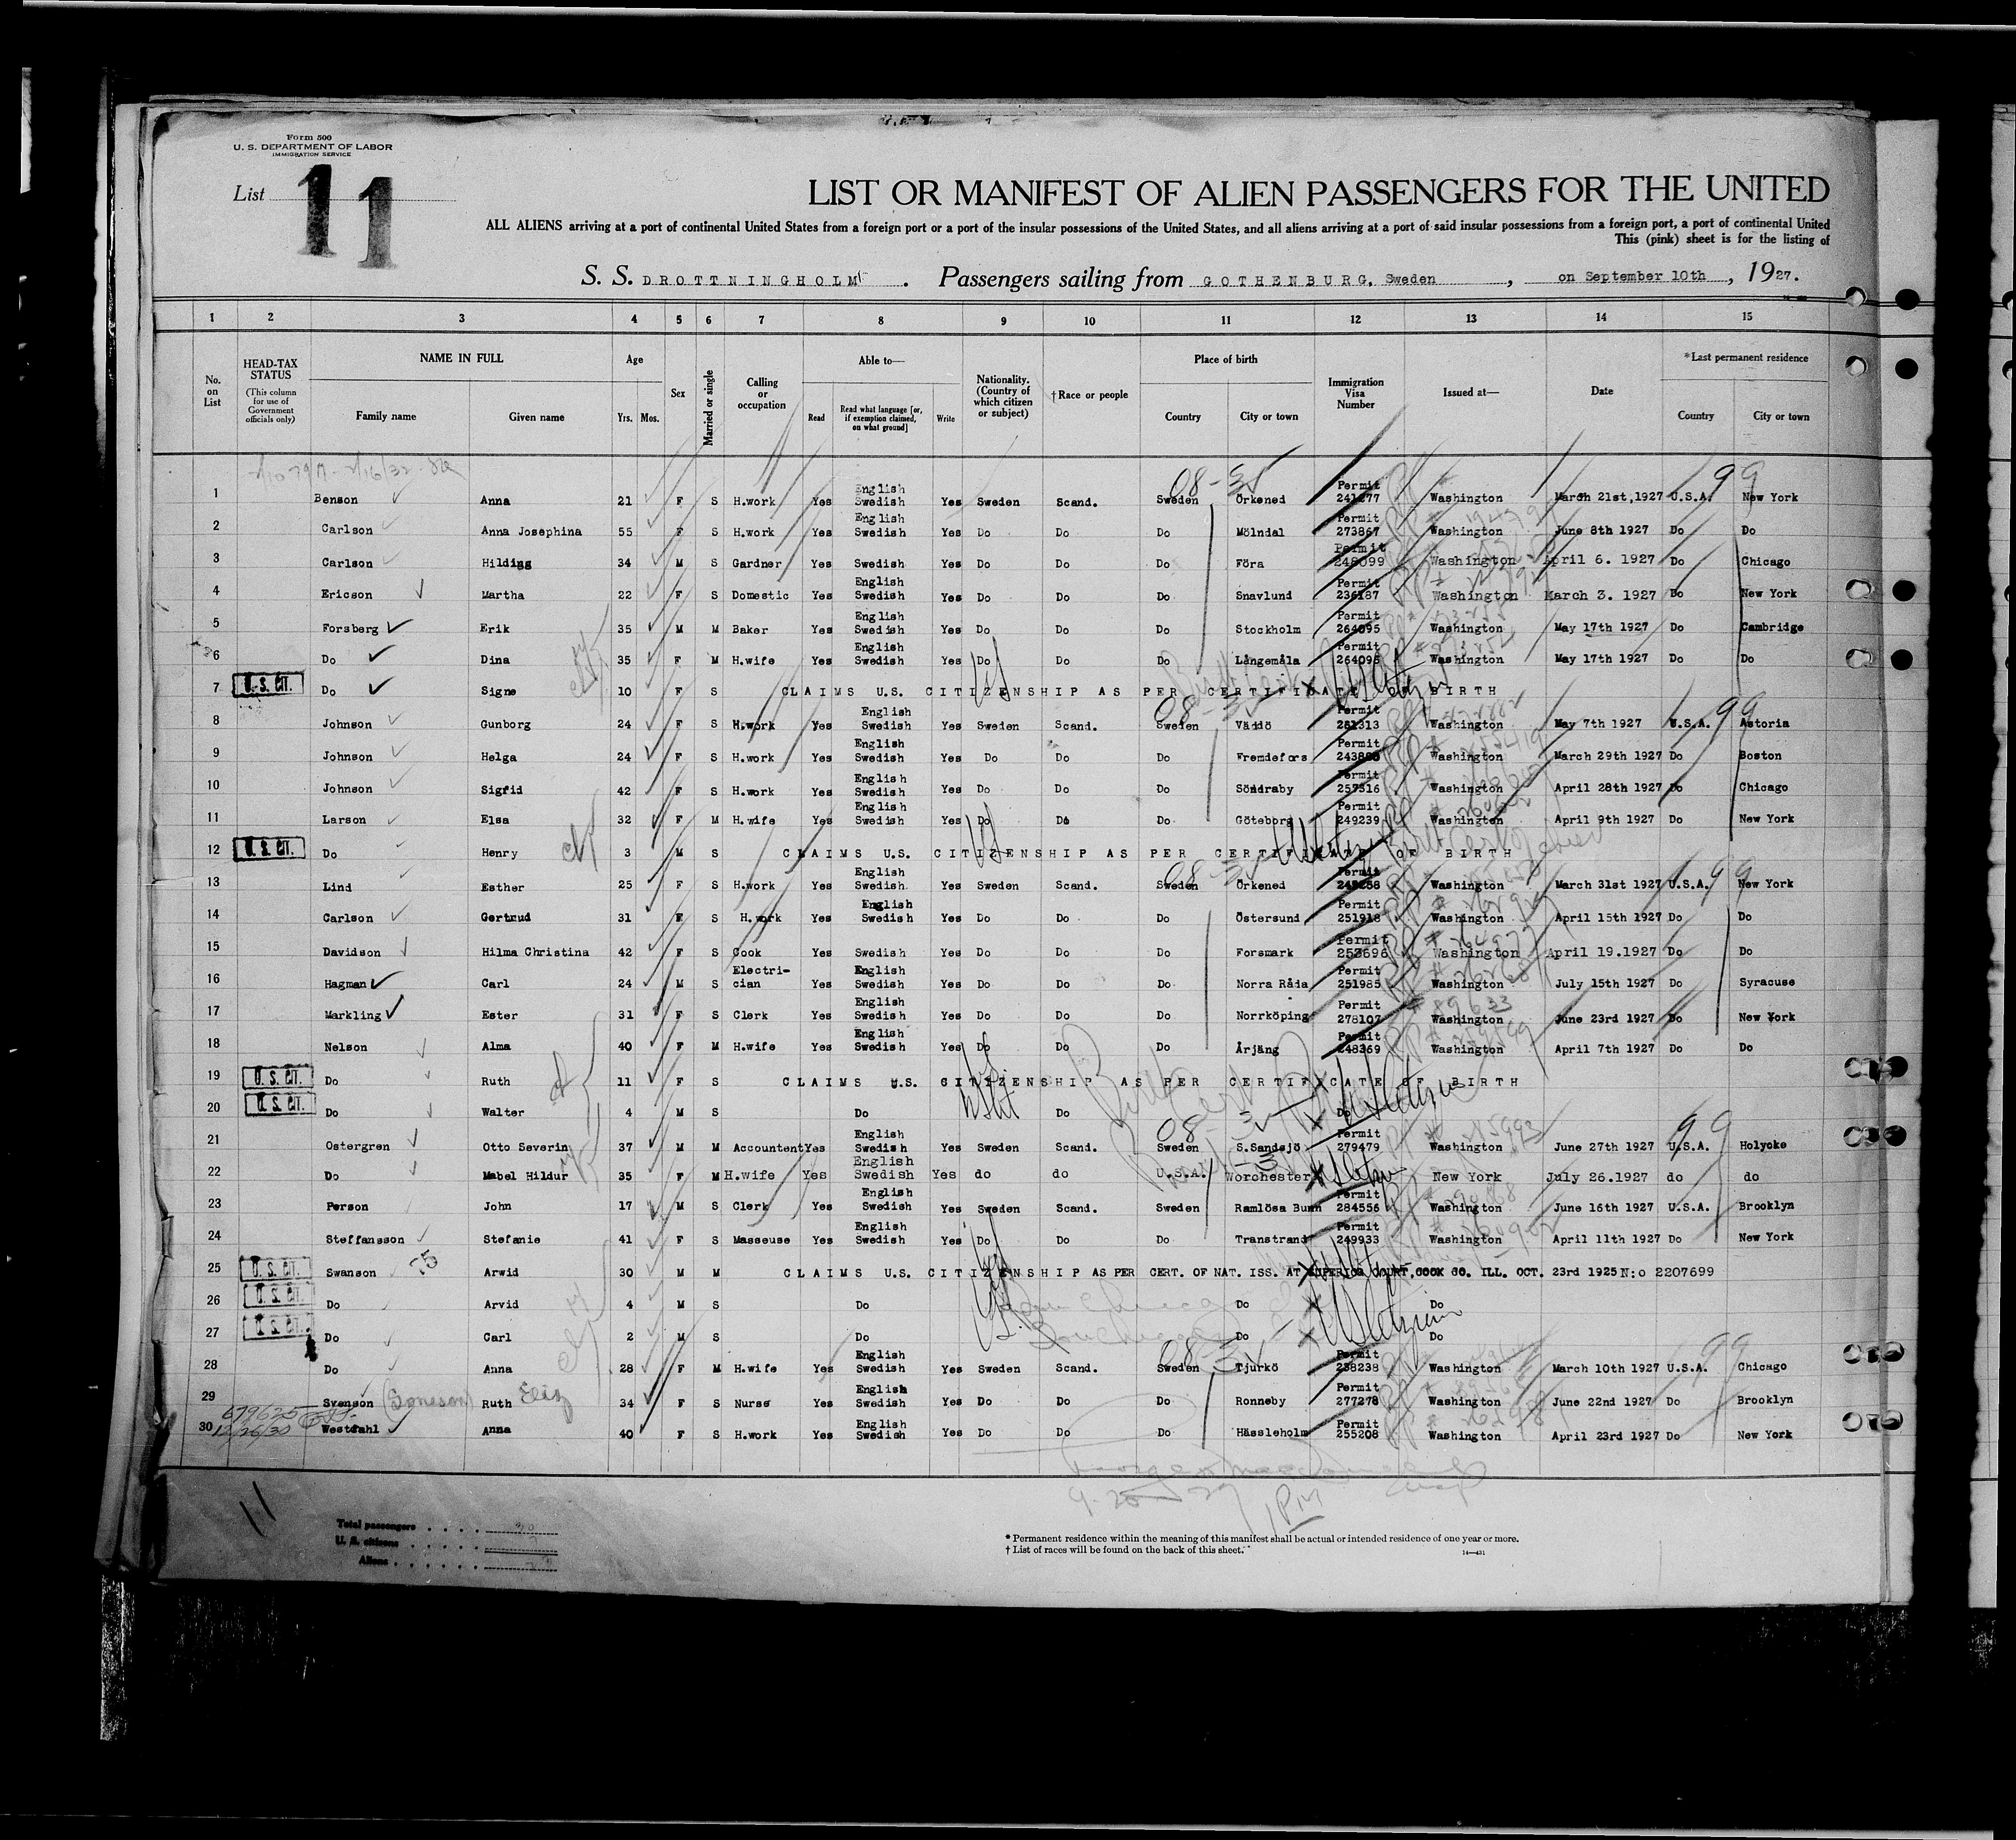 Form 500
U. S. DEPARTMENT OF LABOR
IMMIGRATION SERVICE
List 11
LIST OR MANIFEST OF ALIEN PASSENGERS FOR THE UNITED
ALL ALIENS arriving at a port of continental United States from a foreign port or a port of the insular possessions of the United States, and all aliens arriving at a port of said insular possessions from a foreign port, a port of continental United
This (pink) sheet is for the listing of
S. S. DROTTNINGHOLM . Passengers sailing from GOTHENBURG, Sweden , on September 10th , 1927.
1 2 3 4 5 6 7 8 9 10 11 12 13 14 15
No. on List
HEAD-TAX STATUS (This column for use of Government officials only)
NAME IN FULL Family name Given name
Age Yrs. Mos.
Sex
Married or single
Calling or occupation
Able to— Read Read what language [or, if exemption claimed, on what ground] Write
Nationality. (Country of which citizen or subject)
†Race or people
Place of birth Country City or town
Immigration Visa Number
Issued at—
Date
*Last permanent residence Country City or town
1 Benson Anna 21 F S H.work Yes English Swedish Yes Sweden Scand. Sweden Örkened Permit 241277 Washington March 21st,1927 U.S.A. New York
2 Carlson Anna Josephina 55 F S H.work Yes English Swedish Yes Do Do Do Mölndal Permit 273867 Washington June 8th 1927 Do Do
3 Carlson Hilding 34 M S Gardner Yes Swedish Yes Do Do Do Föra Permit 248099 Washington April 6. 1927 Do Chicago
4 Ericson Martha 22 F S Domestic Yes English Swedish Yes Do Do Do Snavlund Permit 236187 Washington March 3. 1927 Do New York
5 Forsberg Erik 35 M M Baker Yes English Swedish Yes Do Do Do Stockholm Permit 264095 Washington May 17th 1927 Do Cambridge
6 Do Dina 35 F M H.wife Yes English Swedish Yes Do Do Do Långemåla Permit 264096 Washington May 17th 1927 Do Do
7 U. S. CIT. Do Signe 10 F S CLAIMS U.S. CITIZENSHIP AS PER CERTIFICATE OF BIRTH
8 Johnson Gunborg 24 F S H.work Yes English Swedish Yes Sweden Scand. Sweden Väddö Permit 261313 Washington May 7th 1927 U.S.A. Astoria
9 Johnson Helga 24 F S H.work Yes English Swedish Yes Do Do Do Fremdefors Permit Washington March 29th 1927 Do Boston
10 Johnson Sigfid 42 F S H.work Yes English Swedish Yes Do Do Do Söndraby Permit 257316 Washington April 28th 1927 Do Chicago
11 Larson Elsa 32 F M H.wife Yes English Swedish Yes Do Do Do Göteborg Permit 249239 Washington April 9th 1927 Do New York
12 U. S. CIT. Do Henry 3 M S CLAIMS U.S. CITIZENSHIP AS PER CERTIFICATE OF BIRTH
13 Lind Esther 25 F S H.work Yes English Swedish. Yes Sweden Scand. Sweden Örkened Permit Washington March 31st 1927 U.S.A. New York
14 Carlson Gertrud 31 F S H.work Yes English Swedish Yes Do Do Do Östersund Permit 251918 Washington April 15th 1927 Do Do
15 Davidson Hilma Christina 42 F S Cook Yes Swedish Yes Do Do Do Forsmark Permit 253696 Washington April 19.1927 Do Do
16 Hagman Carl 24 M S Electrician Yes English Swedish Yes Do Do Do Norra Råda Permit 251985 Washington July 15th 1927 Do Syracuse
17 Markling Ester 31 F S Clerk Yes English Swedish Yes Do Do Do Norrköping Permit 278107 Washington June 23rd 1927 Do New York
18 Nelson Alma 40 F M H.wife Yes English Swedish Yes Do Do Do Årjäng Permit 248369 Washington April 7th 1927 Do Do
19 U. S. CIT. Do Ruth 11 F S CLAIMS U.S. CITIZENSHIP AS PER CERTIFICATE OF BIRTH
20 U. S. CIT. Do Walter 4 M S Do Do Do
21 Ostergren Otto Severin 37 M M Accountent Yes English Swedish Yes Sweden Scand. Sweden S.Sandsjö Permit 279479 Washington June 27th 1927 U.S.A. Holyoke
22 Do Mabel Hildur 35 F M H.wife Yes English Swedish Yes do do U.S.A. Worchester New York July 26.1927 do do
23 Person John 17 M S Clerk Yes English Swedish Yes Sweden Scand. Sweden Ramlösa Bunn Permit 284556 Washington June 16th 1927 U.S.A. Brooklyn
24 Steffansson Stefanie 41 F S Masseuse Yes English Swedish Yes Do Do Do Transtrand Permit 249933 Washington April 11th 1927 Do New York
25 U. S. CIT. Swanson 75 Arwid 30 M M CLAIMS U.S. CITIZENSHIP AS PER CERT. OF NAT. ISS. AT SUPERIOR COURT,COOK CO. ILL. OCT. 23rd 1925 N:o 2207699
26 U. S. CIT. Do Arvid 4 M S Do Do Do
27 U. S. CIT. Do Carl 2 M S Do Do Do
28 Do Anna 28 F M H.wife Yes English Swedish Yes Sweden Scand. Sweden Tjurkö Permit 238238 Washington March 10th 1927 U.S.A. Chicago
29 Svenson Ruth Eliz 34 F S Nurse Yes English Swedish Yes Do Do Do Ronneby Permit 277278 Washington June 22nd 1927 Do Brooklyn
679625
12/26/30
30 Westdahl Anna 40 F S H.work Yes English Swedish Yes Do Do Do Hässleholm Permit 255208 Washington April 23rd 1927 Do New York
11
1 PM
Total passengers
U. S. citizens
Aliens
* Permanent residence within the meaning of this manifest shall be actual or intended residence of one year or more.
† List of races will be found on the back of this sheet.
14—431